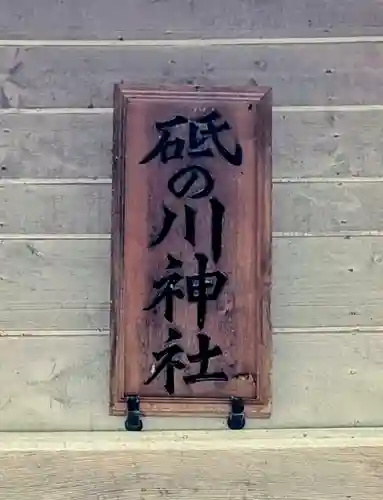 砥の川神社